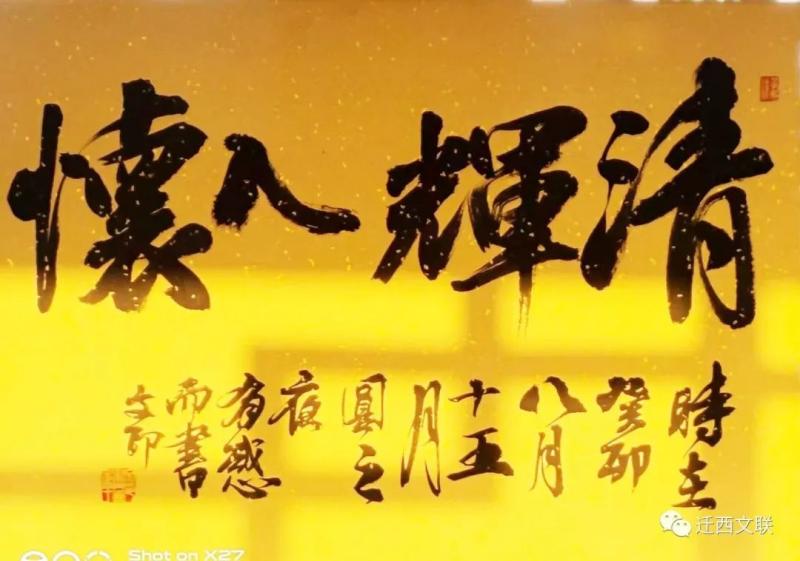 清輝入懷
時在
癸卯
八月
十五
月
圓之
夜
有感
而書
文印
迁西文联
Shot on X27